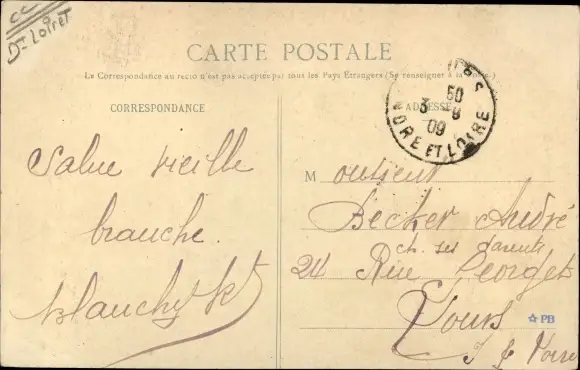 Dt Loiret
CARTE POSTALE
La Correspondance au recto n'est pas acceptée par tous les Pays Etrangers (Se renseigner à la Poste.)
CORRESPONDANCE
ADRESSE
50
3 - 9
09
INDRE ET LOIRE
Salue vieille
branche.
M onsieur
Becker André
ch. ses parents
24 Rue Georget
Tours
I & Loire
☆ PB